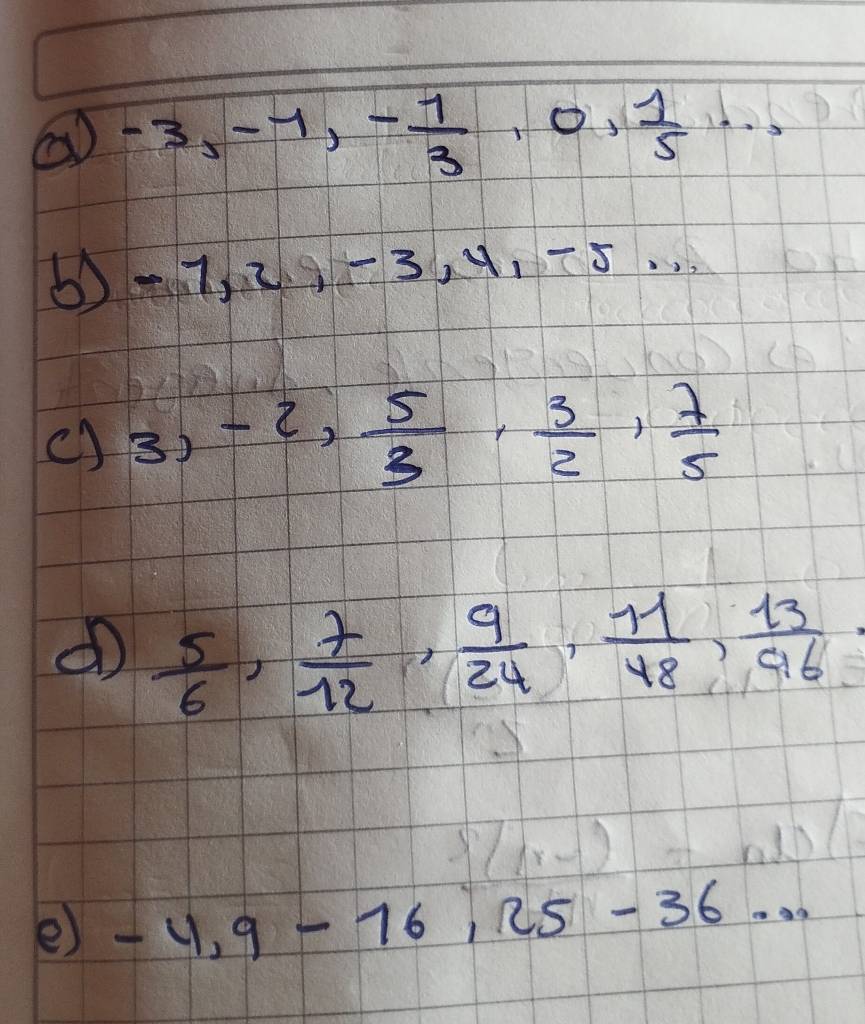 a) -3, -1, -1/3, 0, 1/5 ...,
b) -1, 2, -3, 4, -5 ...
c) 3, -2, 5/3, 3/2, 7/5
d) 5/6, 7/12, 9/24, 11/48, 13/96.
e) -4, 9 - 16, 25 - 36 ...